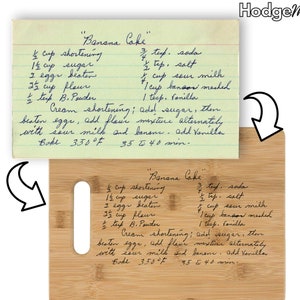 Hodge
"Banana Cake"
½ cup shortening ¾ tsp. soda
1½ cup sugar ½ tsp. salt
2 eggs beaten ½ cup sour milk
2½ cup flour 1 cup banana mashed
½ tsp B. Powder 1 teasp. Vanilla
Cream shortening; add sugar, then
beaten eggs, add flour mixture alternately
with sour milk and banana. add Vanilla
Bake 350°F 35 to 40 min.
Banana Cake"
cup shortening tsp. soda
cup sugar tsp. salt
eggs beaten cup sour milk
cup flour 1 cup banana mashed
tsp B. Powder 1 Vanilla
Cream shortening; add sugar, then
beaten eggs, add flour mixture alternately
with sour milk and banana. add Vanilla
Bake 350°F 35 to 40 min.